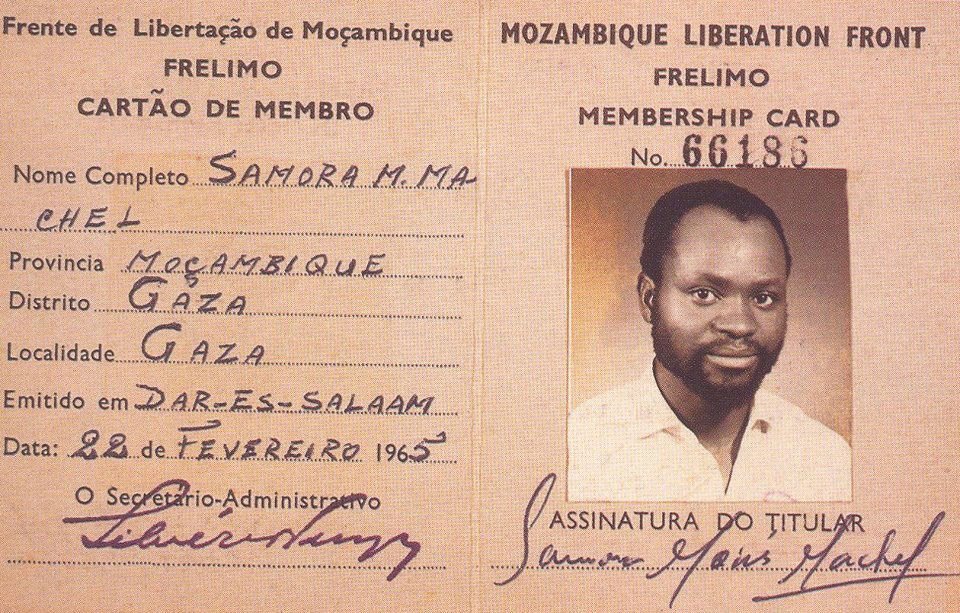 Frente de Libertação de Moçambique
FRELIMO
CARTÃO DE MEMBRO
Nome Completo SAMORA M. MA
CHEL
Provincia MOÇAMBIQUE
Distrito GAZA
Localidade GAZA
Emitido em DAR-ES-SALAAM
Data: 22 de FEVEREIRO 1965
O Secretário-Administrativo
MOZAMBIQUE LIBERATION FRONT
FRELIMO
MEMBERSHIP CARD
No. 66186
ASSINATURA DO TITULAR
Samora Moisés Machel